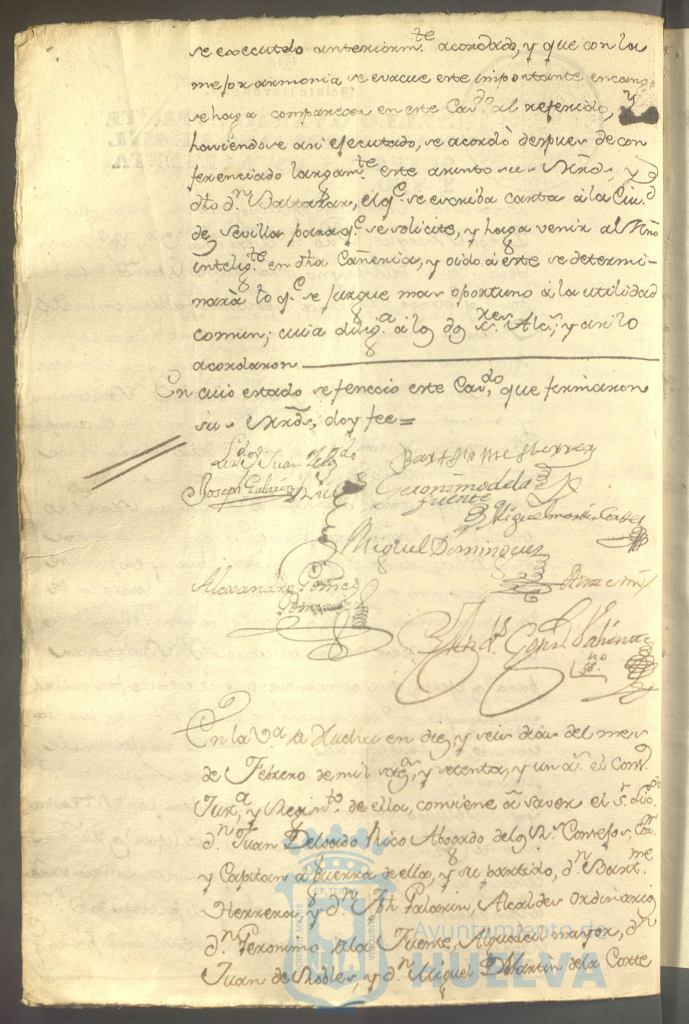 se executdo anteriorm.te acordado, y que con la
mejor armonia se evacue este importante encargo
se haga comparecer en este Cav.do al referido, y
haviendose asi ejecutado, se acordò despues de con
ferenciado largam.te este asunto sus Mrds, y
dho d.n Baltasar, el q.e se escriba carta à la Ciu.d
de Sevilla para q.e se solicite, y haga venir al Mro
intelig.te en dha Cañeria, y oido à este se determi-
narà lo q.e se jusgue mas oportuno à la utilidad
comun; cuia dilig.a à los dos res Alc.s, y asi lo
acordaron
En cuio estado se fenecio este Cav.do, que firmaron
sus Mrds, doy fee=
Lizdo Juan Delgdo
Rico
Barthme Herrera
Joseph Palazin
Geronimo de la
Fuente
Miguel martin Cortes
Miguel Dominguez
Alexandro Gomes
En la V.a de Huelva en diez y seis dias del mes
de Febrero de mil setez.s, y setenta, y un a.s el Cons.o
Just.a, y Regim.to de ella, conviene à saver el s.r Lizdo
d.n Juan Delgado Rico Abogado de los R.s Consejos, Cor.or
y Capitan à Guerra de ella, y su partido, d.n Bart.me
Herrera, y d.n Jph Palazin, Alcaldes Ordinarios
d.n Geronimo de la Fuente, Alguacil mayor, d.n
Juan de Robles, y d.n Miguel Martin de la Corte
Ayuntamiento de
HUELVA